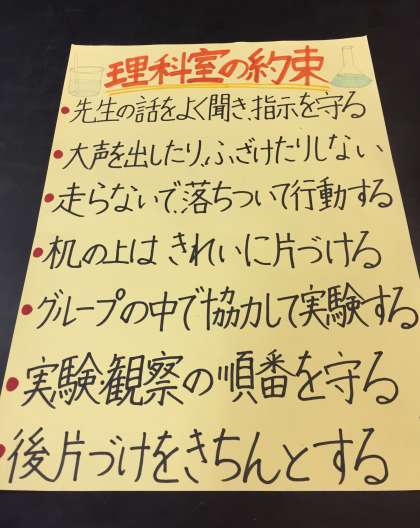 理科室の約束
先生の話をよく聞き、指示を守る
大声を出したり、ふざけたりしない
走らないで、落ちついて行動する
机の上は きれいに片づける
グループの中で協力して実験する
実験観察の順番を守る
後片づけをきちんとする